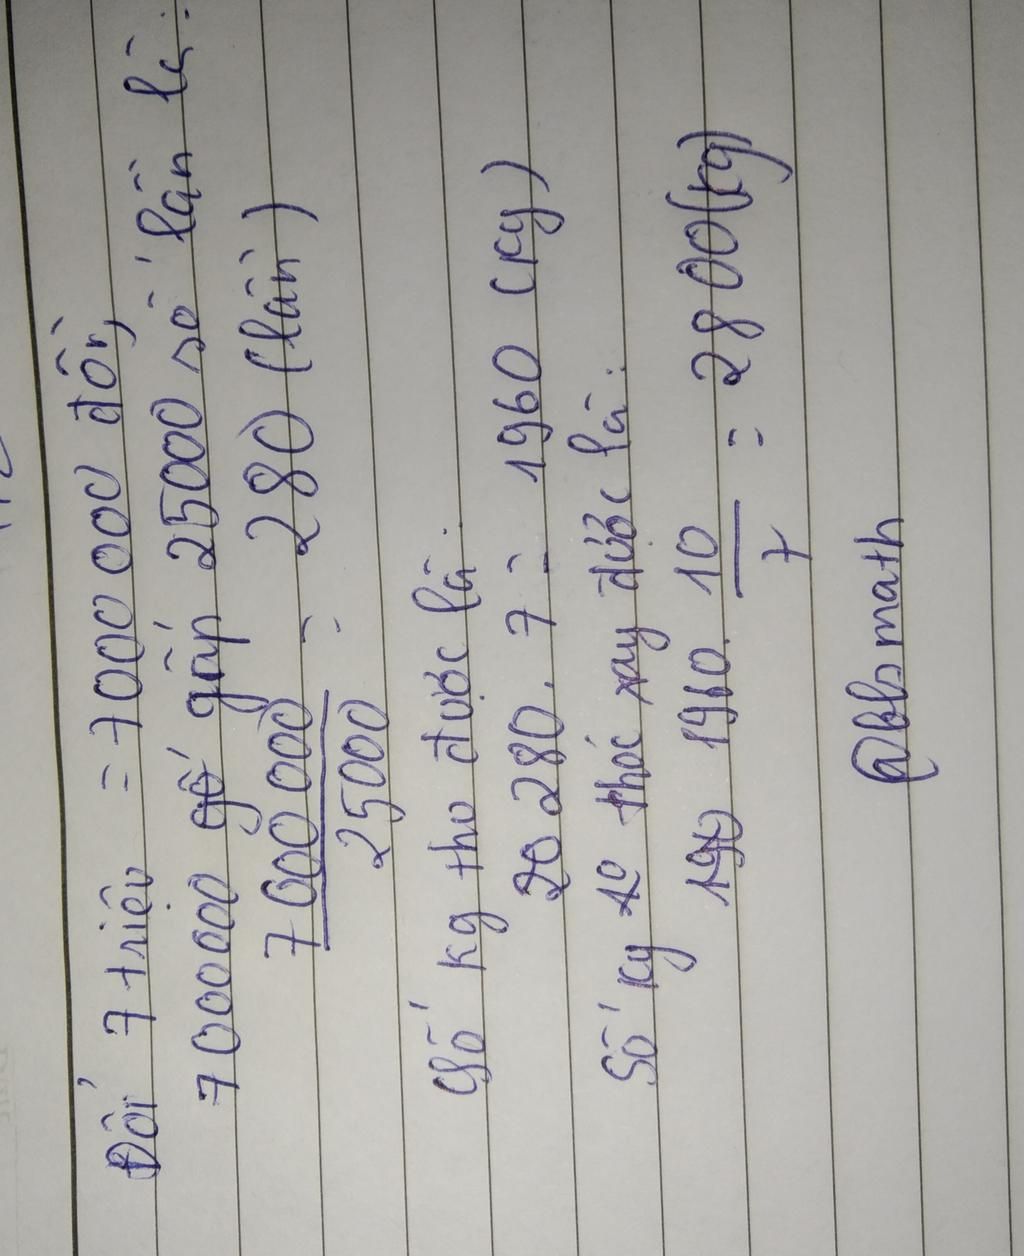 Đổi 7 triệu = 7000 000 đồng
7000000 gấp 25000 số lần là:
7 000 000 / 25000 = 280 (lần)
Số kg thu được là:
280 . 7 = 1960 (kg)
Số kg thóc xay được là:
1960 . 10 / 7 = 2800 (kg)
@bbsmath